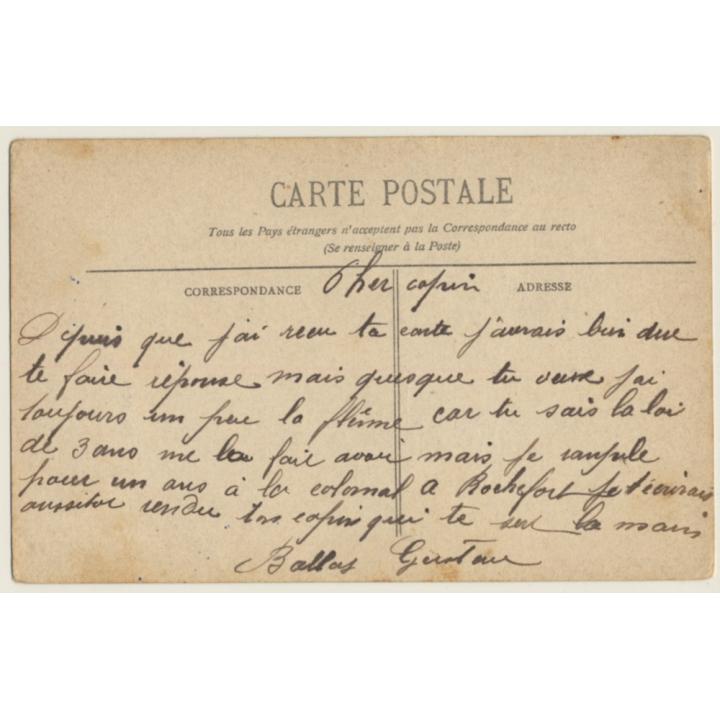 CARTE POSTALE
Tous les Pays étrangers n'acceptent pas la Correspondance au recto
(Se renseigner à la Poste)
CORRESPONDANCE Cher copin ADRESSE
Depuis que j'ai recu ta carte j'aurais bien due
te faire réponse mais quesque tu veux j'ai
toujours un peu la flême car tu sais la loi
de 3 ans me la fait avoir mais je rempile
pour un ans à la colonial a Rochefort je t'écrirais
aussitot rendu ton copin qui te ser la main
Ballas Gustave